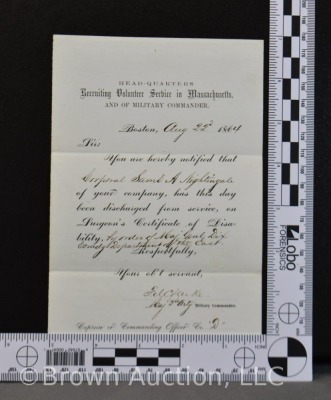 HEAD-QUARTERS
Recruiting Volunteer Service in Massachusetts,
AND OF MILITARY COMMANDER.
Boston, Aug 22d 1864
Sir
You are hereby notified that
Corporal Saml A. Nightingale
of your company, has this day
been discharged from service, on
Surgeon's Certificate of Disa-
bility, by order of Maj Genl Dix
Comdg Department of the East.
Respectfully,
Your ob't servant,
Military Commander.
Captain or Commanding Officer Co. D
Lobo
FORENSICS
© Brown Auction, LLC